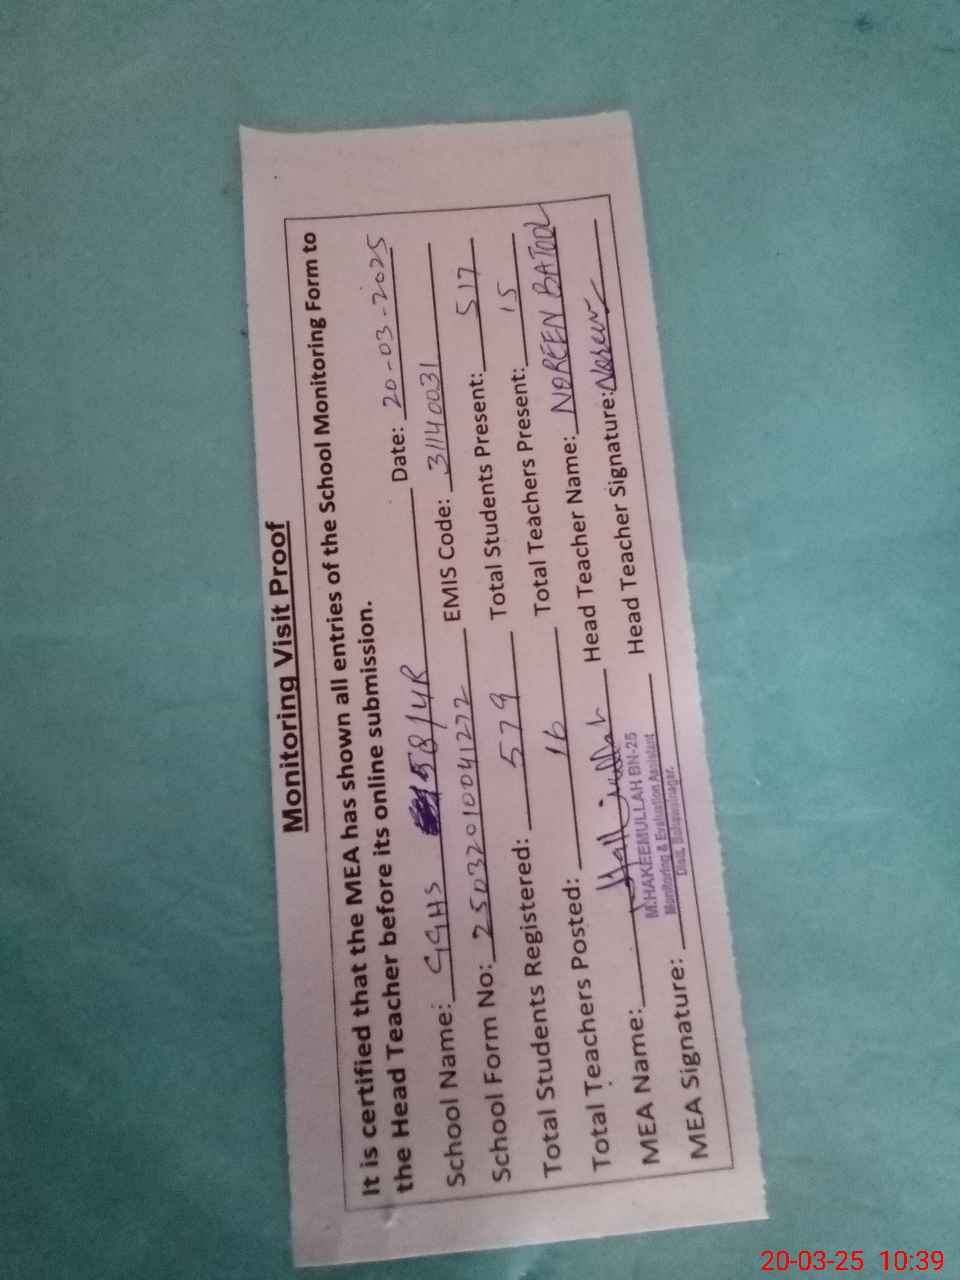 Monitoring Visit Proof
It is certified that the MEA has shown all entries of the School Monitoring Form to
the Head Teacher before its online submission.
School Name: GGHS 58/4R Date: 20-03-2025
School Form No: 25032010041272 EMIS Code: 31140031
Total Students Registered: 579 Total Students Present: 517
Total Teachers Posted: 16 Total Teachers Present: 15
MEA Name: Head Teacher Name: NOREEN BATOOL
MEA Signature: Head Teacher Signature: Noreen
M.HAKEEMULLAH BN-25
Monitoring & Evaluation Assistant
Distt. Bahawalnagar.
20-03-25 10:39